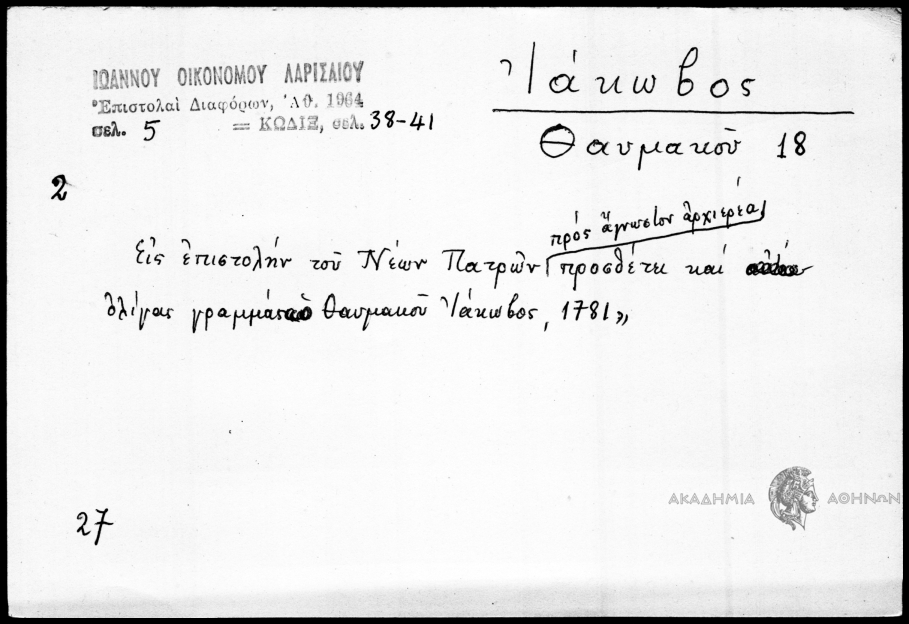 ΙΩΑΝΝΟΥ ΟΙΚΟΝΟΜΟΥ ΛΑΡΙΣΑΙΟΥ
Ἐπιστολαὶ Διαφόρων, Ἀθ. 1964
σελ. 5 = ΚΩΔΙΞ, σελ. 38-41
Ἰάκωβος
Θαυμακοῦ 18
2
πρός ἄγνωστον ἀρχιερέα
Εἰς ἐπιστολήν τοῦ Νέων Πατρῶν προσθέτει καί
ὀλίγας γραμμάς ὁ Θαυμακοῦ Ἰάκωβος, 1781»
27
ΑΚΑΔΗΜΙΑ ΑΘΗΝΩΝ